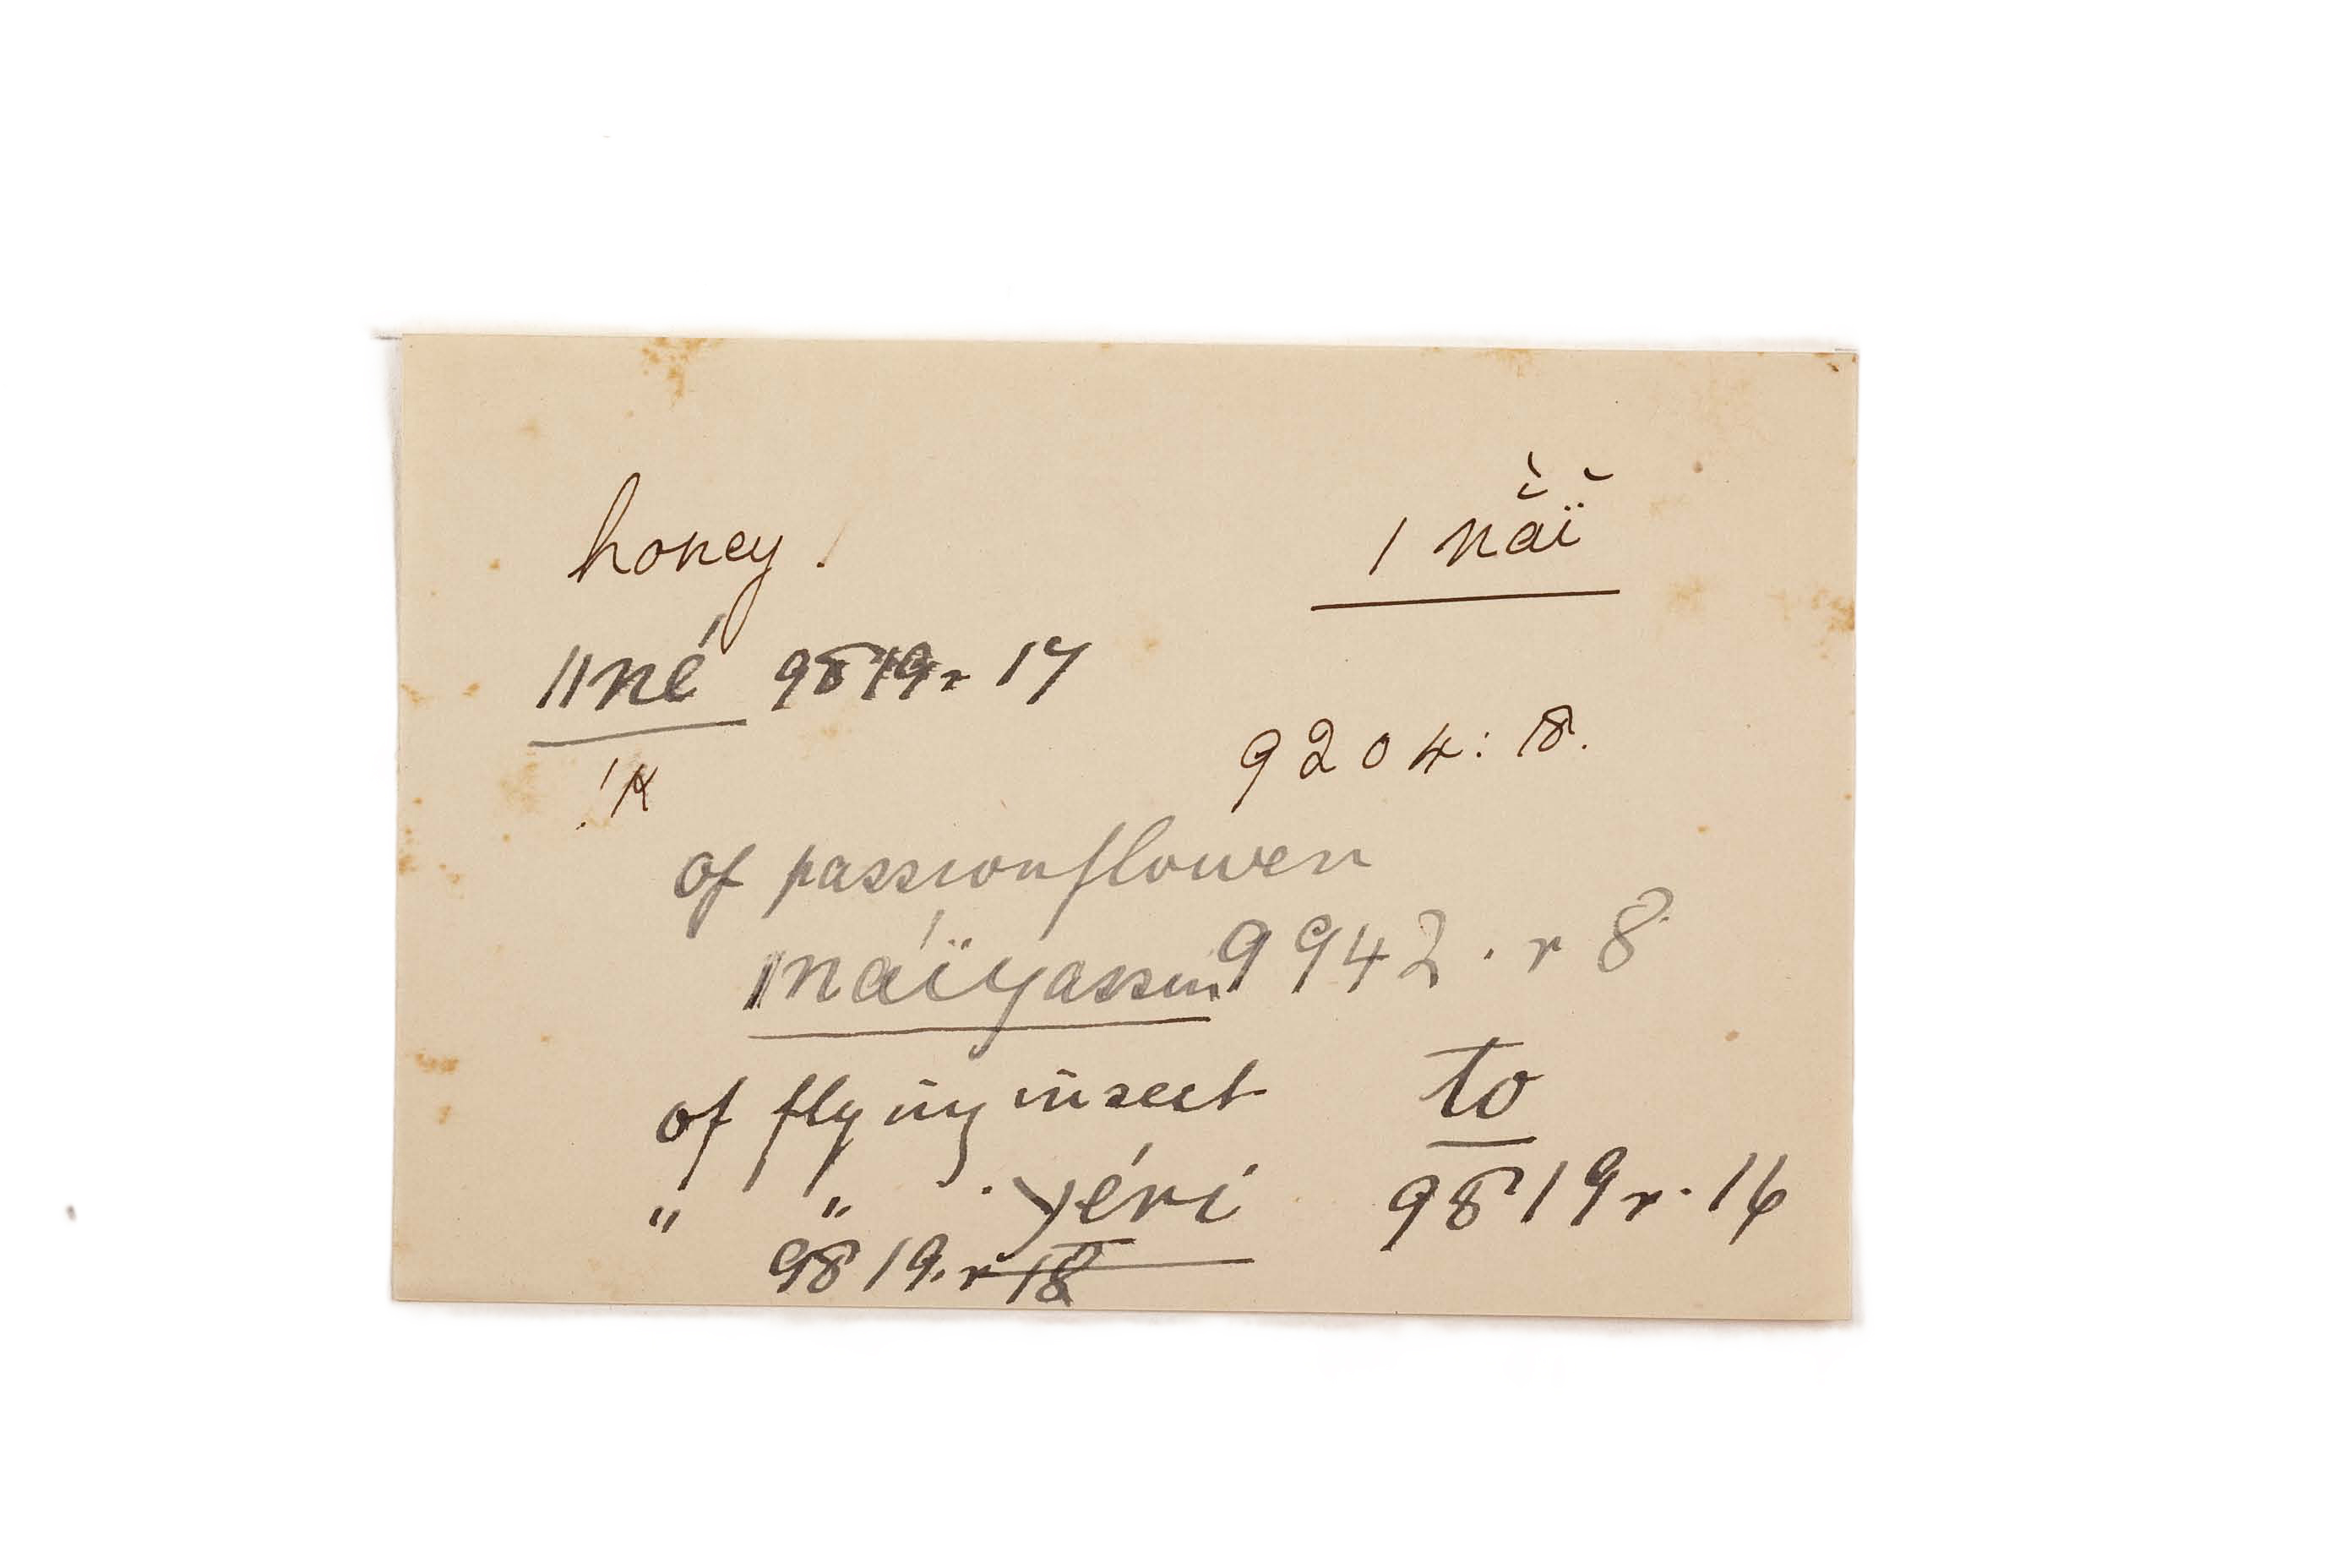 honey. | nǎĭ
||né 9819 r 17
9204: 18.
of passionflower
|náïyassin 9942. r 8
of flying insect to
" " yéri 9819 r. 16
9819. r 18